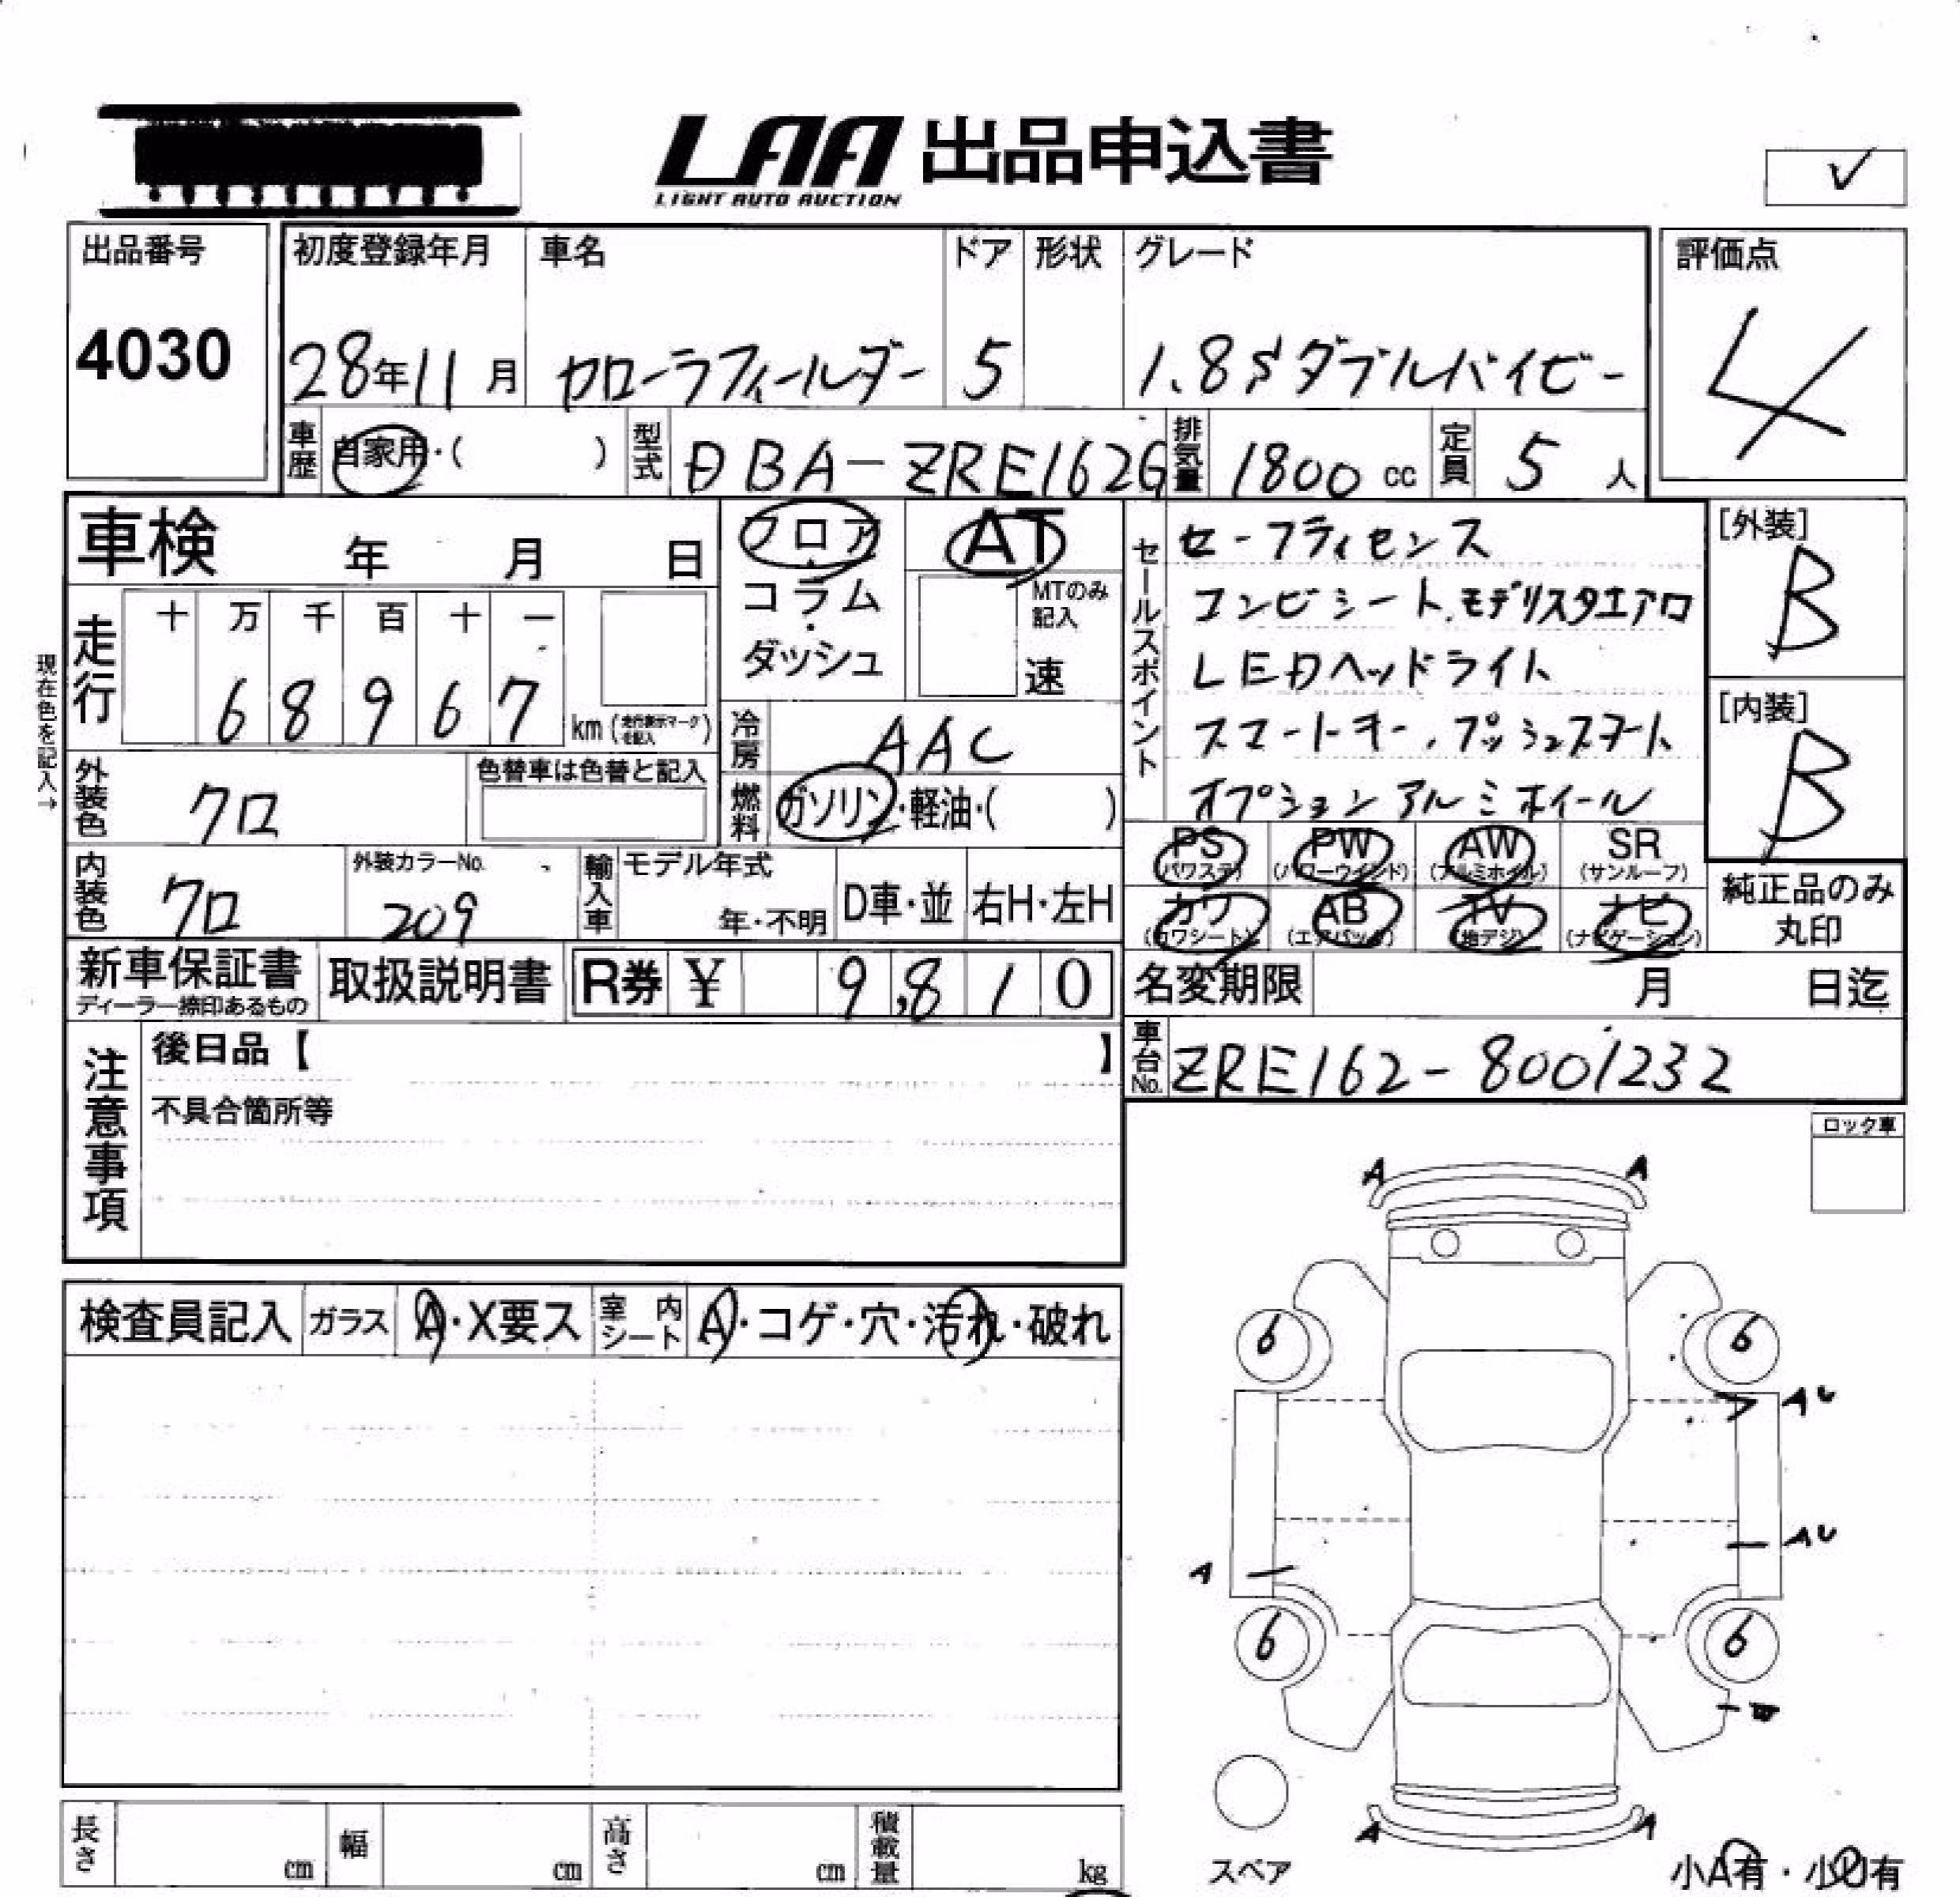 LAA 出品申込書
LIGHT AUTO AUCTION
✓
出品番号 4030
初度登録年月 28年11月
車名 カローラフィールダー
ドア 5
形状
グレード 1.8Sダブルバイビー
評価点 4
車歴 自家用・( )
型式 DBA-ZRE162G
排気量 1800 cc
定員 5 人
車検 年 月 日
フロア・コラム・ダッシュ
AT
MTのみ記入
速
セールスポイント
セーフティセンス
コンビシート.モデリスタエアロ
LEDヘッドライト
スマートキー.プッシュスタート
オプションアルミホイール
[外装] B
[内装] B
現在色を記入→
走行 十 万 千 百 十 一
6 8 9 6 7
km (走行表示マークを記入)
冷房 AAC
燃料 ガソリン・軽油・( )
外装色 クロ
色替車は色替と記入
内装色 クロ
外装カラーNo. 209
輸入車 モデル年式 年・不明
D車・並
右H・左H
PS (パワステ)
PW (パワーウインド)
AW (アルミホイル)
SR (サンルーフ)
カワ (カワシート)
AB (エアバック)
TV (地デジ)
ナビ (ナビゲーション)
純正品のみ
丸印
新車保証書
ディーラー捺印あるもの
取扱説明書
R券 ¥ 9,810
名変期限 月 日迄
車台No. ZRE162-8001232
注意事項
後日品【 】
不具合箇所等
ロック車
検査員記入 ガラス A・X要ス 室内シート A・コゲ・穴・汚れ・破れ
A A
6 6
AU
AU
A
6 6
A A
スペア
小A有・小U有
長さ cm 幅 cm 高さ cm 積載量 kg